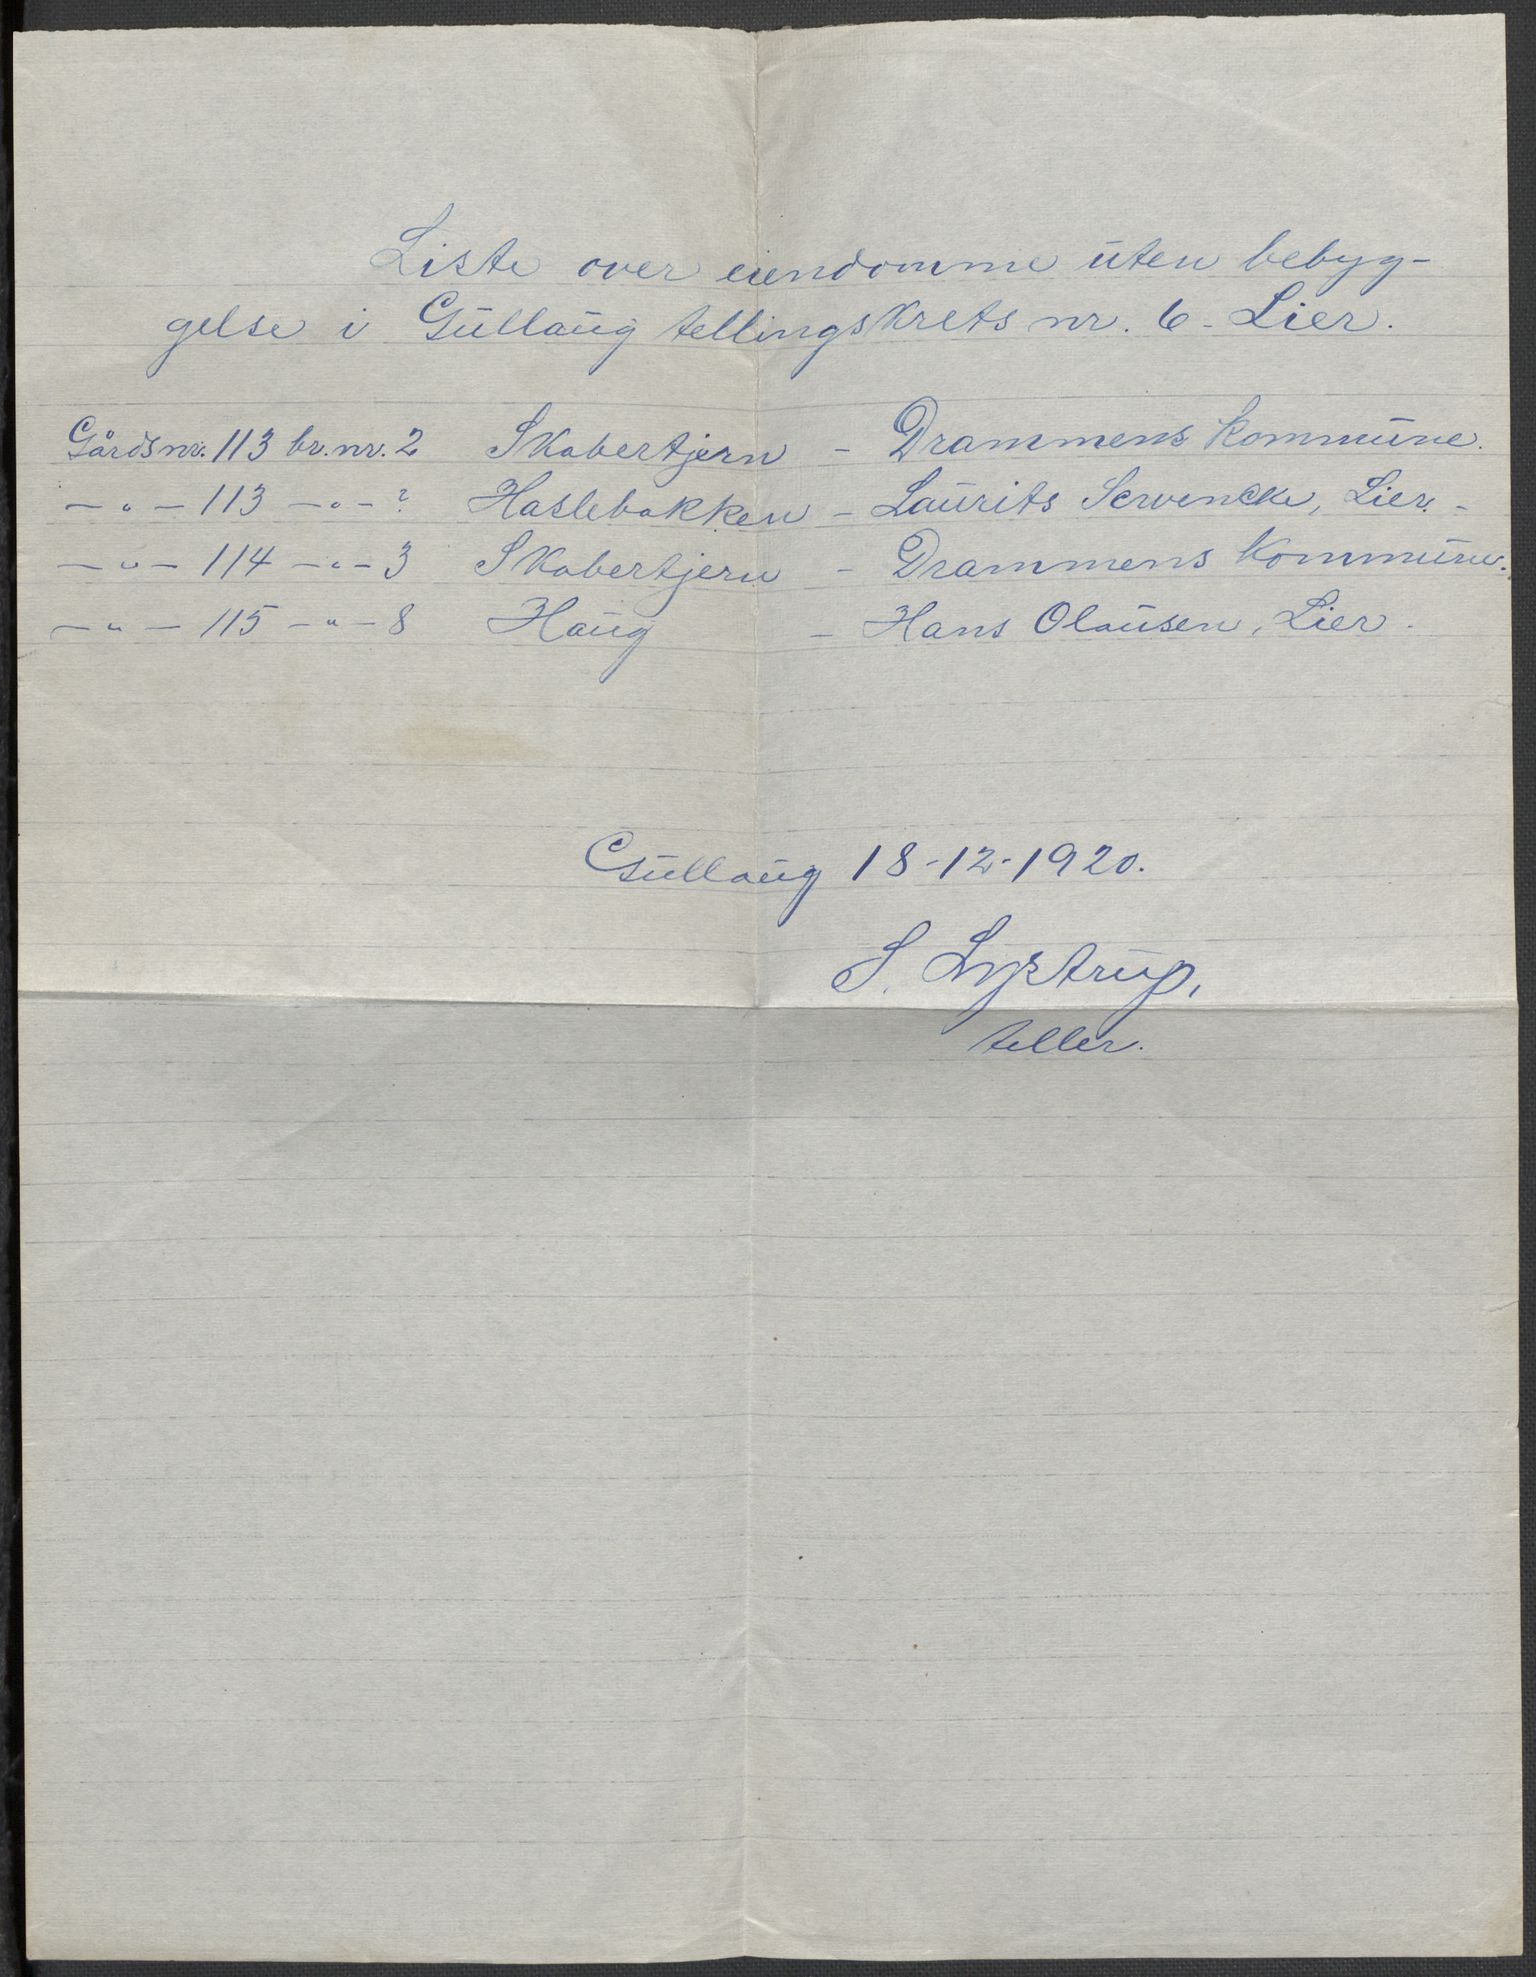 Liste over eiendomme uten bebyg-
gelse i Gullaug tellingskrets nr. 6 - Lier.
Gårdsnr. 113 br. nr. 2 Skabertjern - Drammens Kommune.
- " - 113 - " - ? Haslebakken - Laurits Servencke, Lier. -
- " - 114 - " - 3 Skabertjern - Drammens Kommune.
- " - 115 - " - 8 Haug - Hans Olausen, Lier.
Gullaug 18-12-1920.
S. Lystrup,
teller.